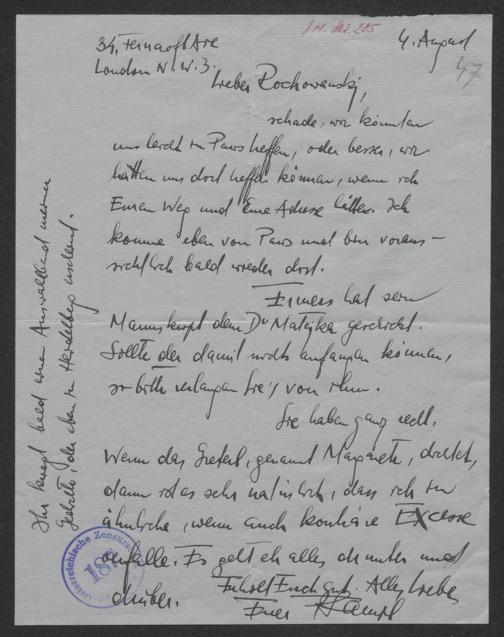 J.N. 202.285
34, Ferncroft Ave
4. August
London N.W.3.
47
Lieber Rochowanski,
schade, wir könnten
uns leicht in Paris treffen, oder besser, wir
hätten uns dort treffen können, wenn ich
Euren Weg und Eure Adresse hätte. Ich
komme eben von Paris und bin voraus-
sichtlich bald wieder dort.
Ermers hat sein
Manuskript dem Dr Matejka geschickt.
Sollte der damit nichts anfangen können,
so bitte verlangen Sie's von ihm.
Sie haben ganz recht.
Wenn das Greterl, genannt Margarete, dichtet,
dann ist es sehr natürlich, dass ich in
ähnliche, wenn auch konträre Excesse
verfalle. Es geht eh alles drunter und
drüber.
Fühlet Euch gut. Alles Liebe
Euer
Ihr kriegt bald einen Auswahlband meiner
Gedichte, der eben in Heidelberg erscheint.
Österreichische Zensurs
185